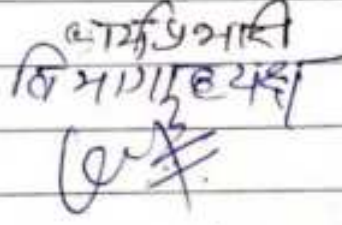 कार्यप्रभारी
विभागाध्यक्ष